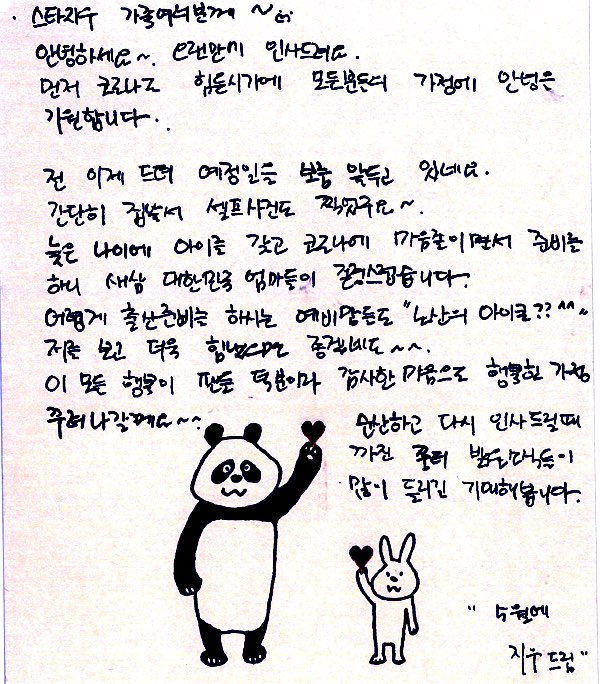 스타지우 가족여러분께 ~
안녕하세요~. 오랜만에 인사드려요.
먼저 코로나로 힘든시기에 모든분들의 가정에 안녕을
기원합니다.
전 이제 드뎌 예정일을 보름 앞두고 있네요.
간단히 집에서 셀프사진도 찍었구요~.
늦은 나이에 아이를 갖고 코로나에 마음졸이면서 준비를
하니 새삼 대한민국 엄마들이 존경스럽습니다.
어렵게 출산준비를 하시는 예비맘들도 "노산의 아이콘?? ^^~
저를 보고 더욱 힘내시고 좋겠네요~~.
이 모든 행복이 팬들 덕분이라 감사한 마음으로 행복한 가정
꾸려나갈께요~~
순산하고 다시 인사드릴때
까진 밝은 소식들이
많이 들리길 기대해봅니다.
" 5월에
지우드림"